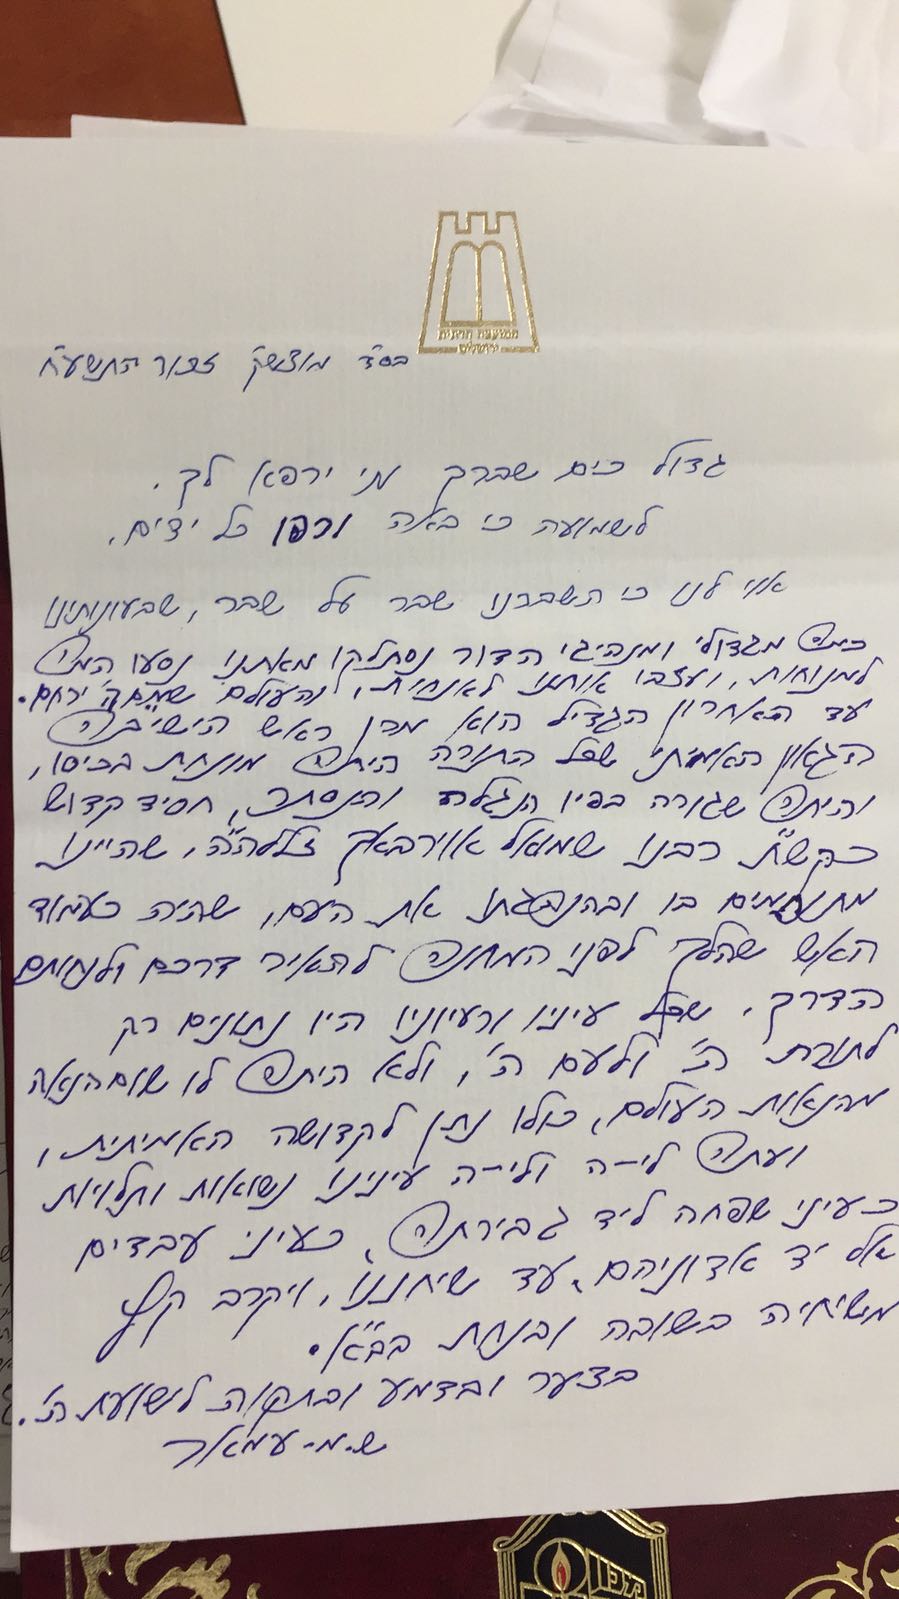 המועצה הדתית
ירושלים
בס"ד מוצש"ק זכור התשע"ח
גדול כים שברך מי ירפא לך.
לשמועה כי באה ורפו כל ידים.
אוי לנו כי השברנו שבר על שבר, שבעונותינו
כמה מגדולי ומנהיגי הדור נסתלקו מאתנו נסעו המה
למנוחות, ועזבו אותנו לאנחות, והעולם
עד האחרון הגדיל הוא מרן ראש הישיבה
הגאון האמיתי שכל התורה היתה מונחת בכיסו,
והיתה שגורה בפיו הנגלה והנסתר, חסיד קדוש
כקש"ת רבנו שמואל אוירבאך זצללה"ה, שהיינו
מתנחמים בו ובהנהגתו את העם, שהיה כעמוד
האש שהלך לפני המחנה להאיר דרכם ולנחותם
הדרך. שכל עיניו ורעיוניו היו נתונים רק
לתורת ה' ולעם ה', ולא היתה לו שום הנאה
מהנאות העולם, כולו נתן לקדושה האמיתית,
ועתה לי-ה ולי-ה עינינו נשואות ותלויות
כעיני שפחה ליד גבירתה, כעיני עבדים
אל יד אדוניהם, עד שיחננו, ויקרב קץ
משיחיה בשובה ובנחת בב"א.
בצער ובדמע ובתקוה לישועת ה'.
ש.מ. עמאר
מכון